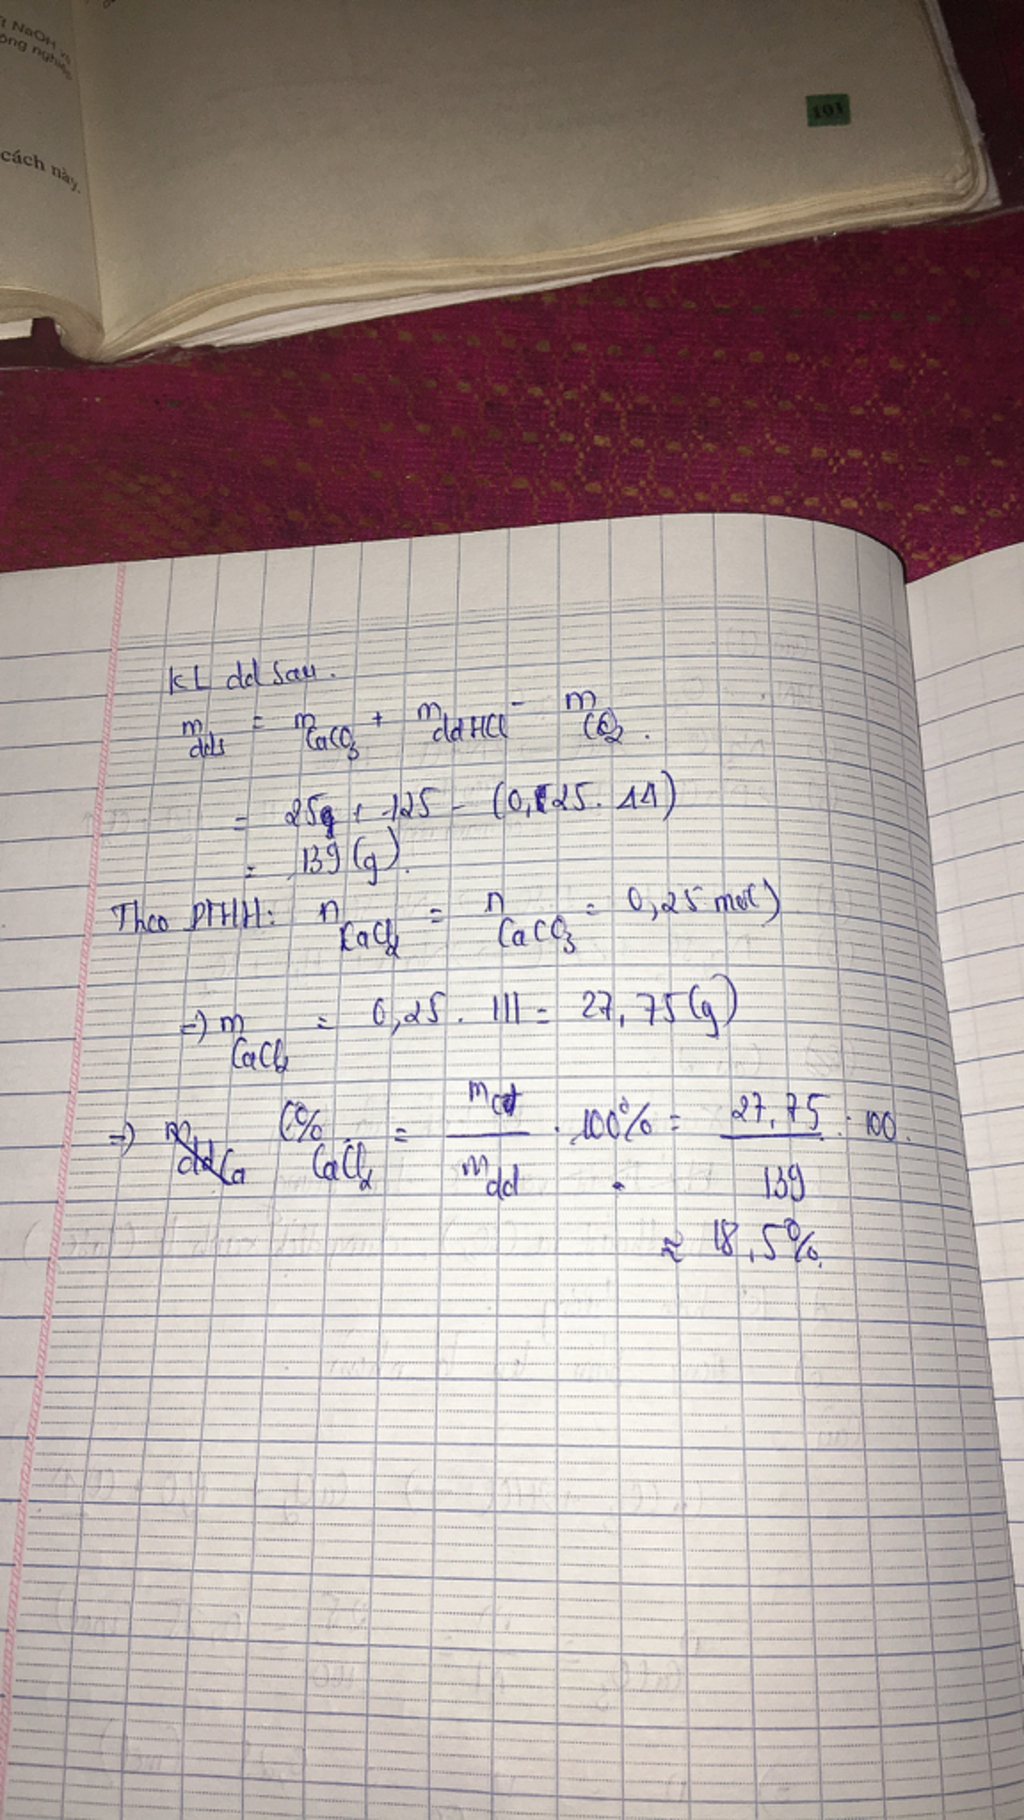 t NaOH và
ống nghiệm
cách này.
101
KL dd sau.
m dds = m CaCO3 + m ddHCl - m CO2.
= 25g + 125 - (0,25.44)
= 139 (g).
Theo PTHH: n CaCl2 = n CaCO3 = 0,25 mol)
=) m CaCl2 = 0,25. 111 = 27,75(g)
=) C% CaCl2 = mct / mdd . 100% = 27,75 / 139 . 100.
≈ 18,5%.